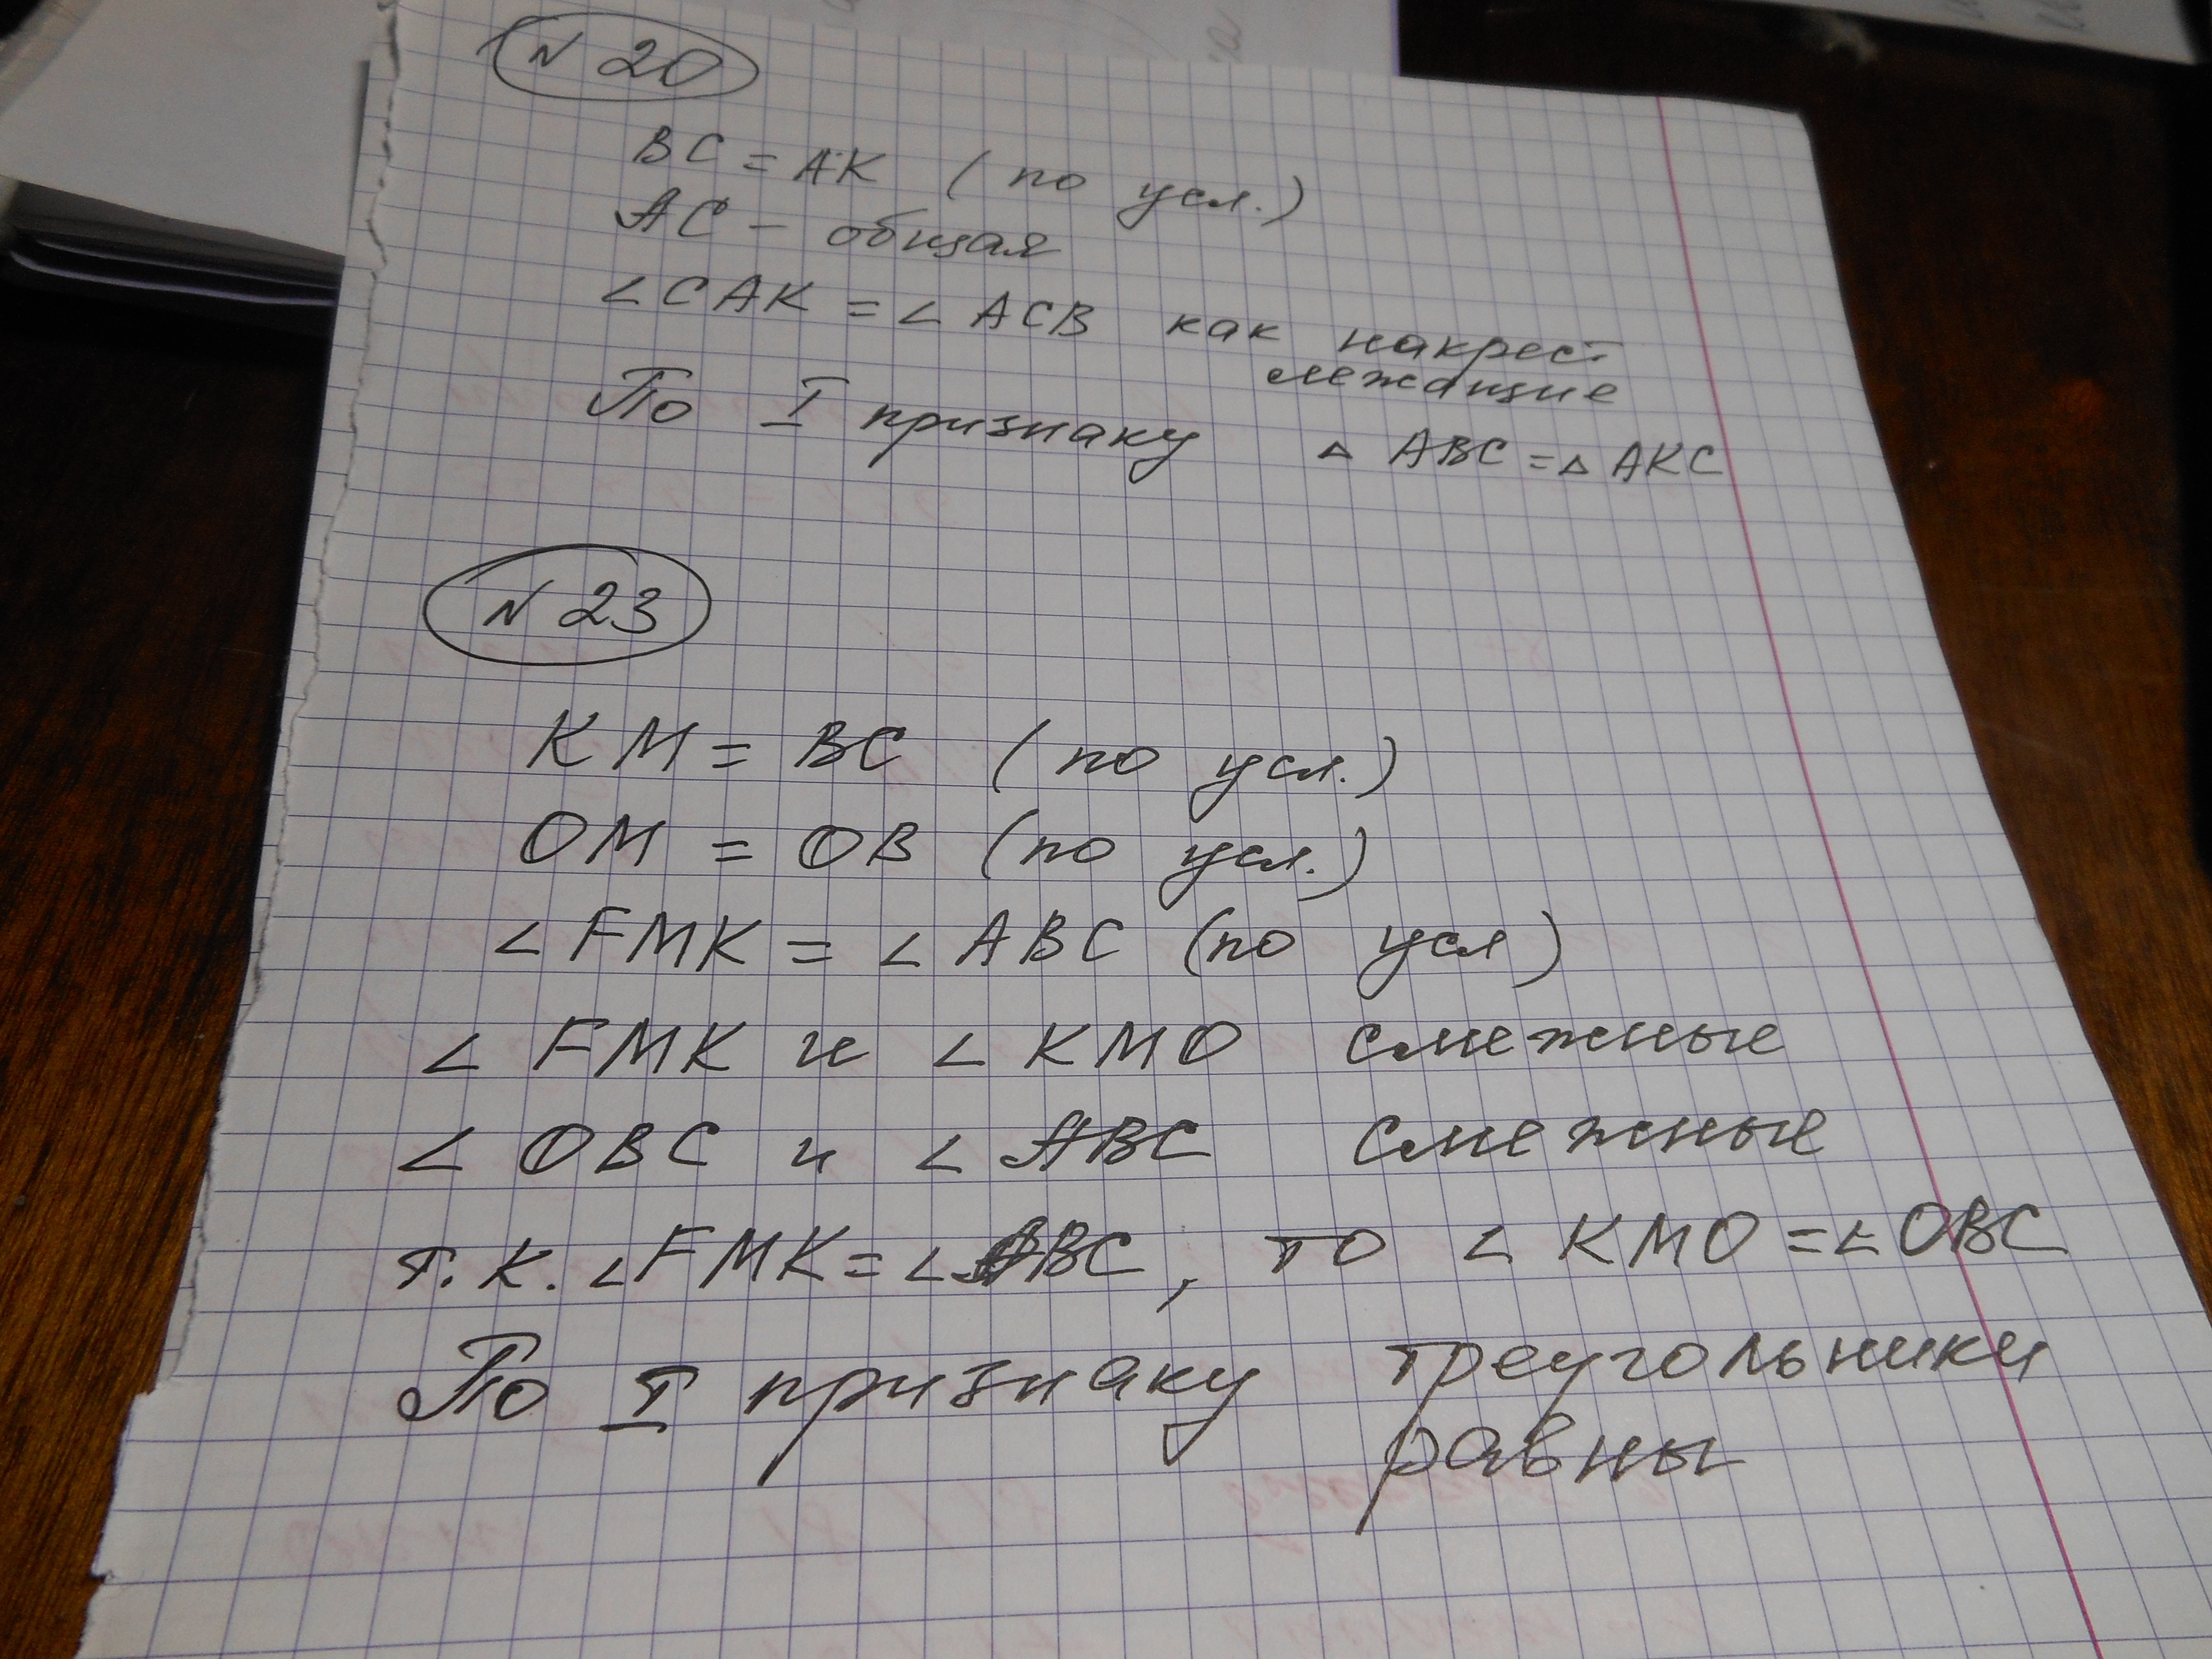 N 20
BC = AK (по усл.)
AC - общая
∠CAK = ∠ACB как накрест
лежащие
По I признаку △ABC = △AKC
N 23
KM = BC (по усл.)
OM = OB (по усл.)
∠FMK = ∠ABC (по усл)
∠FMK и ∠KMO смежные
∠OBC и ∠ABC смежные
т.к. ∠FMK = ∠ABC, то ∠KMO = ∠OBC
По I признаку треугольники
равны